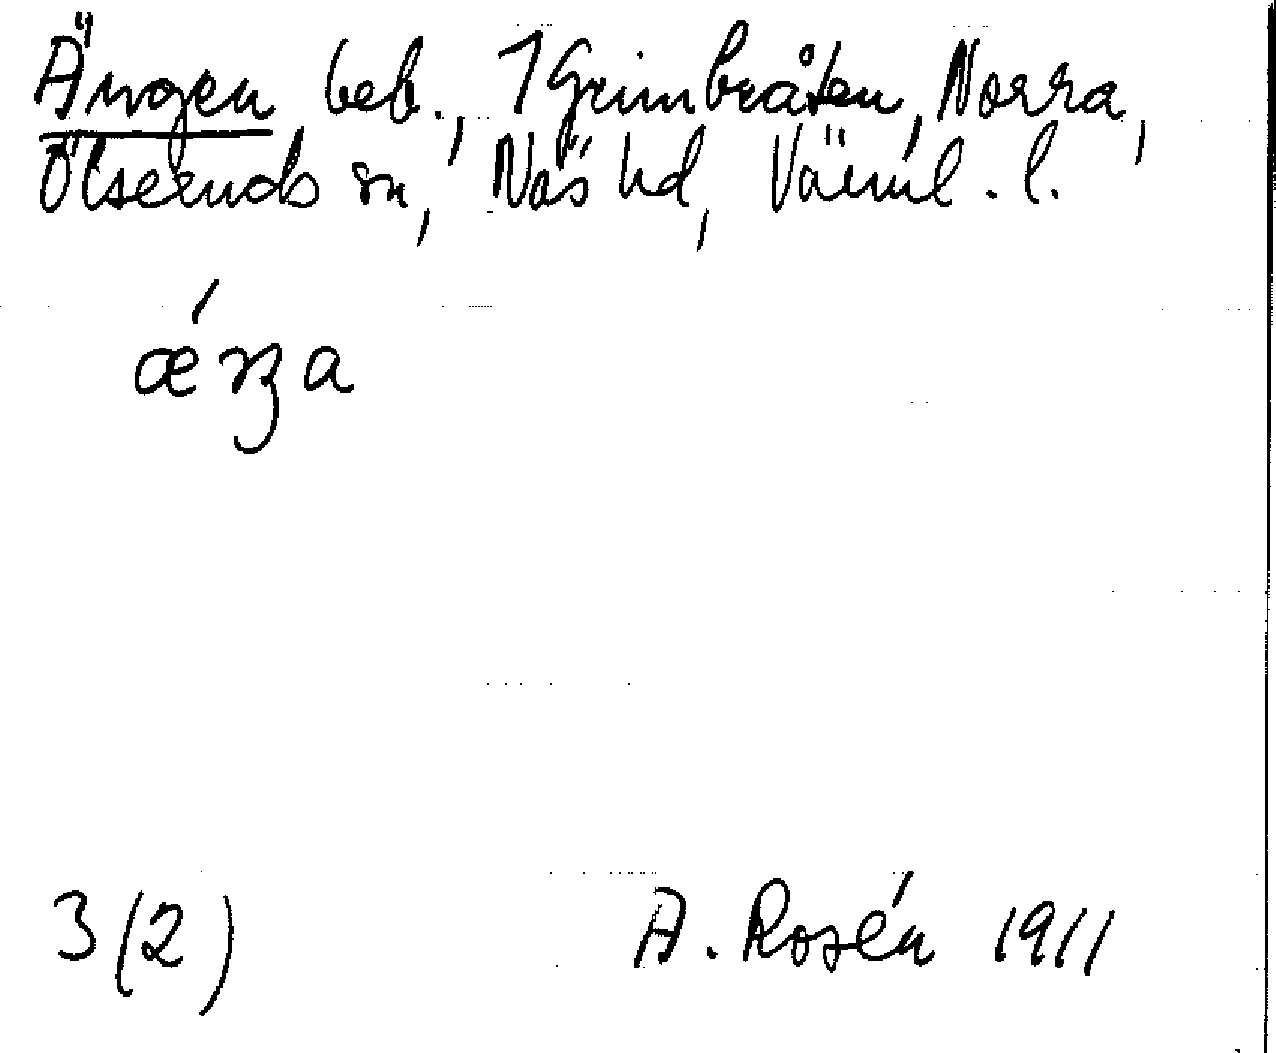 Ängen beb., 1 Grimbråten, Norra,
Ölseruds sn, Näs hd, Värml. l.
ǽŋa
3(2) A. Rosén 1911